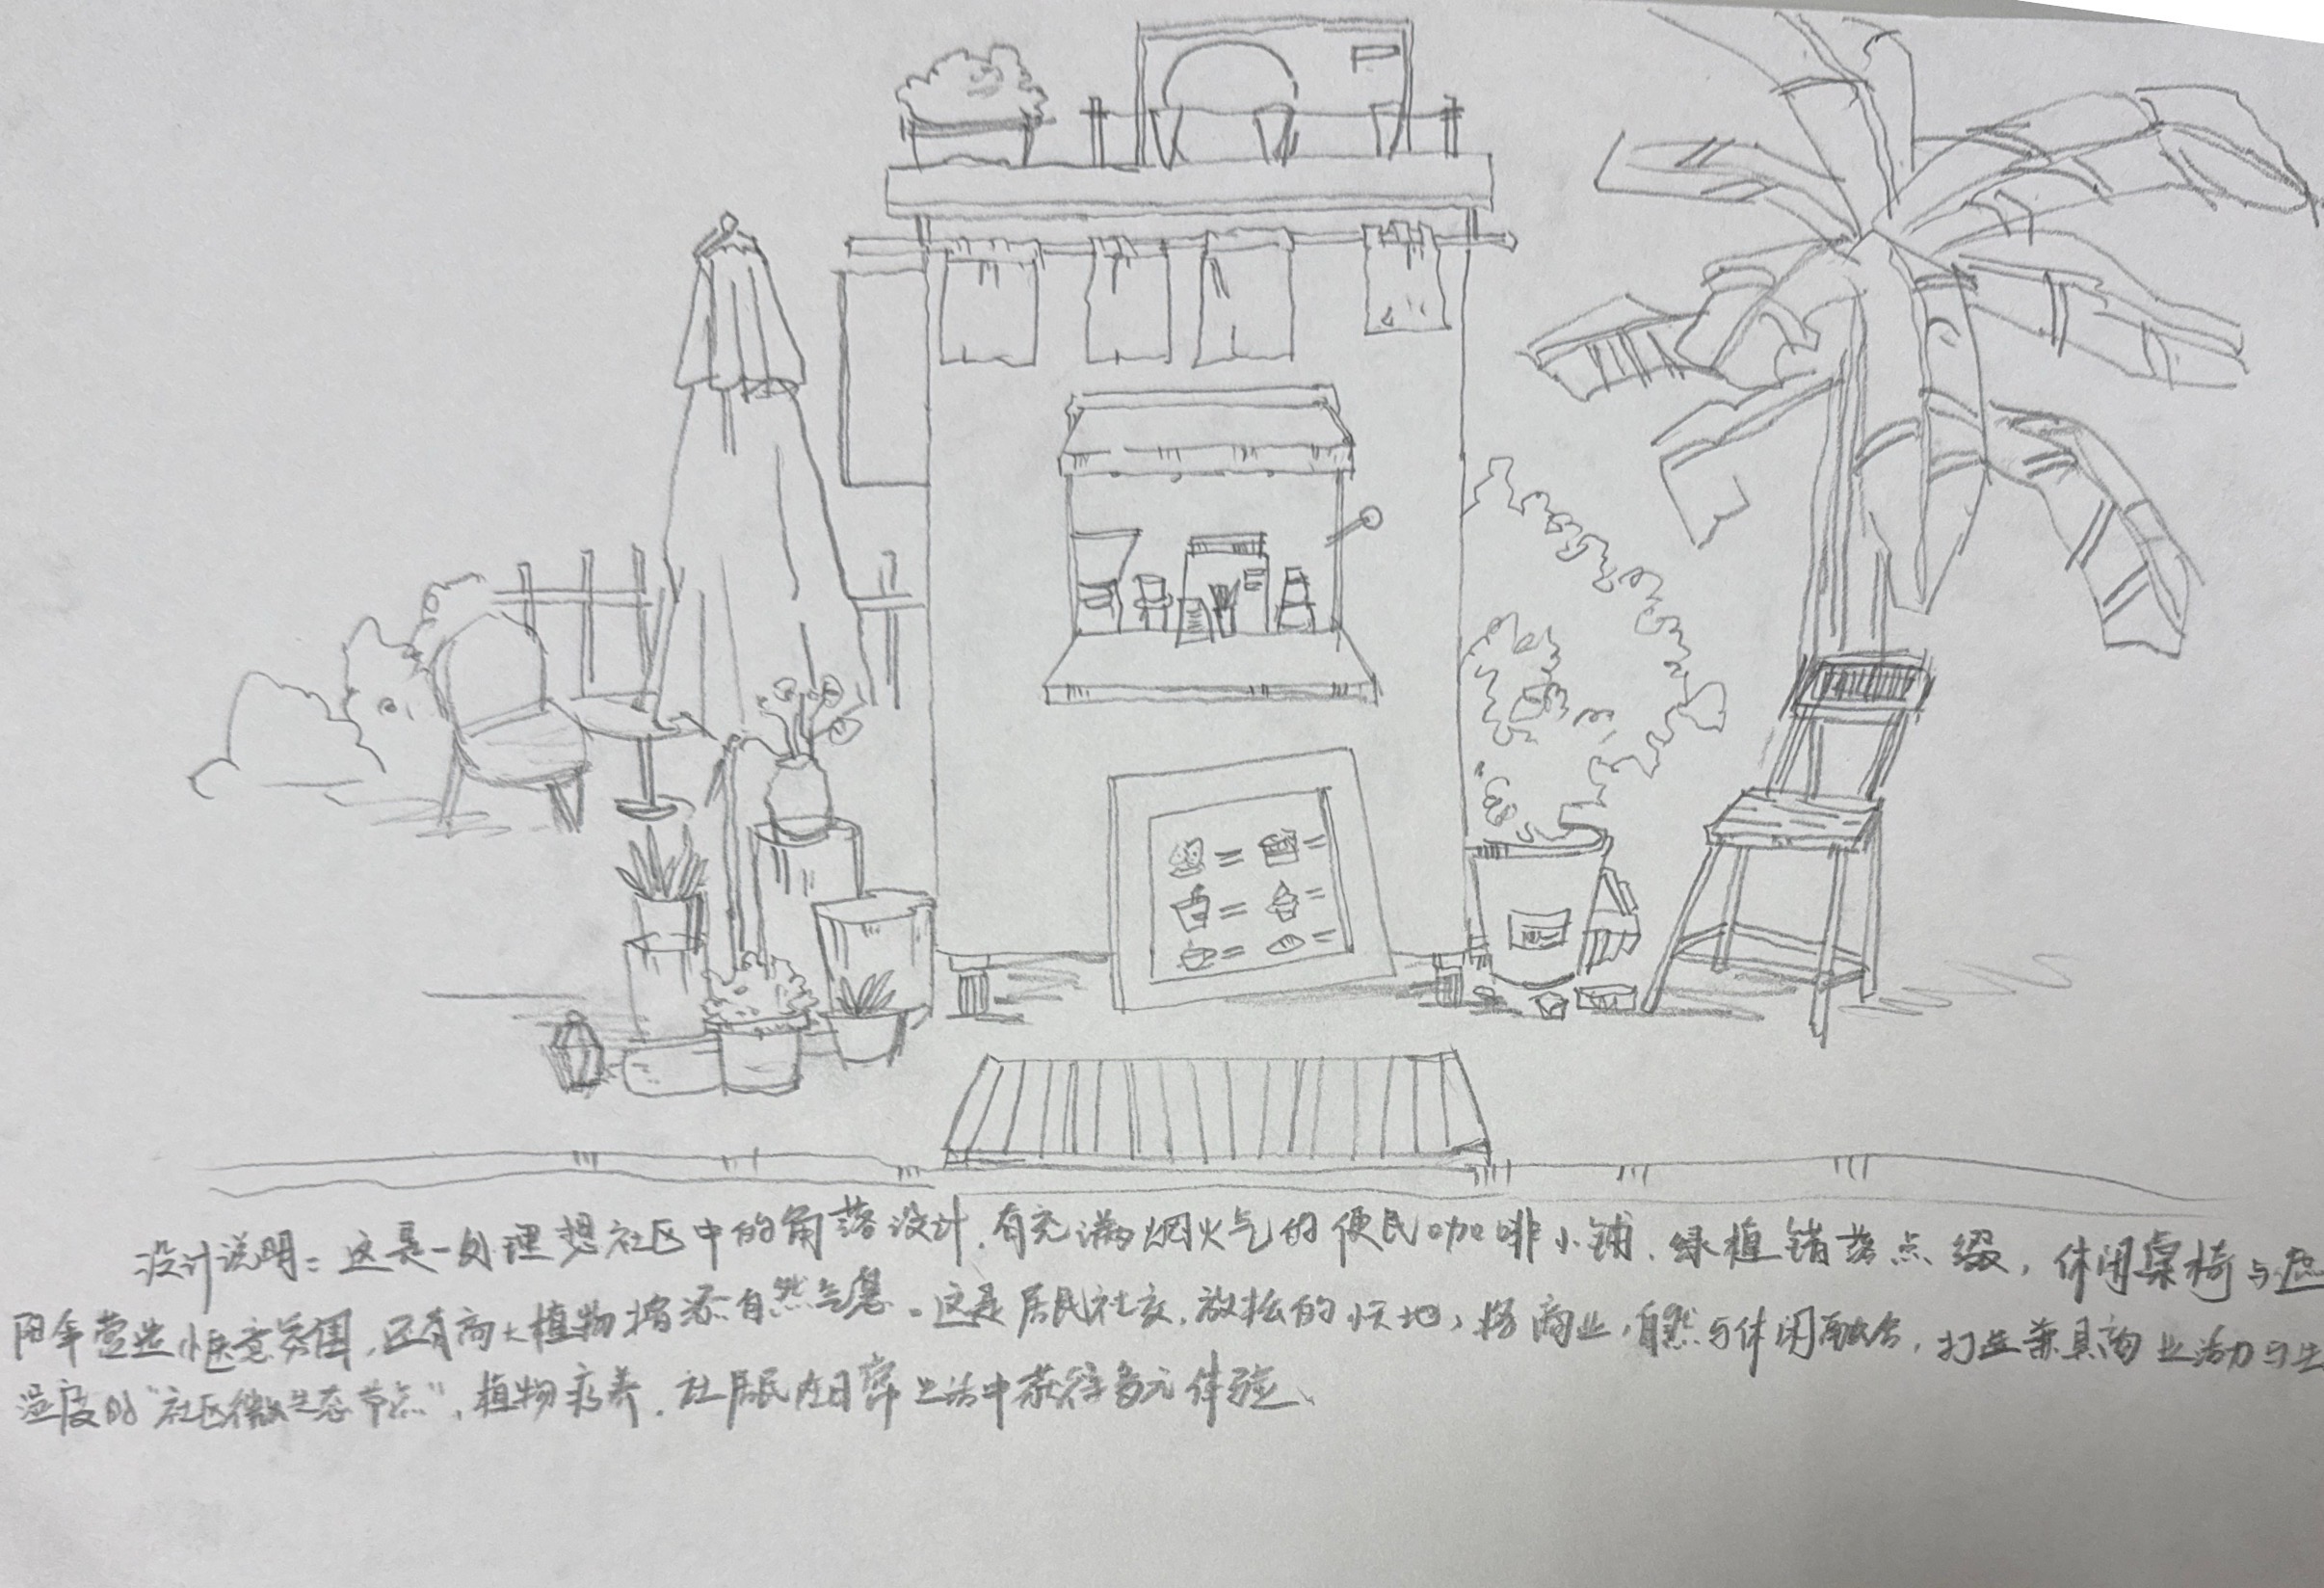 设计说明:这是一处理想社区中的角落设计,有充满烟火气的便民咖啡小铺、绿植错落点缀,休闲桌椅与遮
阳伞营造惬意氛围,还有高大植物增添自然气息。这是居民社交、放松的小天地,将商业,自然与休闲融合,打造兼具商业活力与生
温度的“社区微生态节点”,植物疗养,让居民在日常生活中获得多元体验、